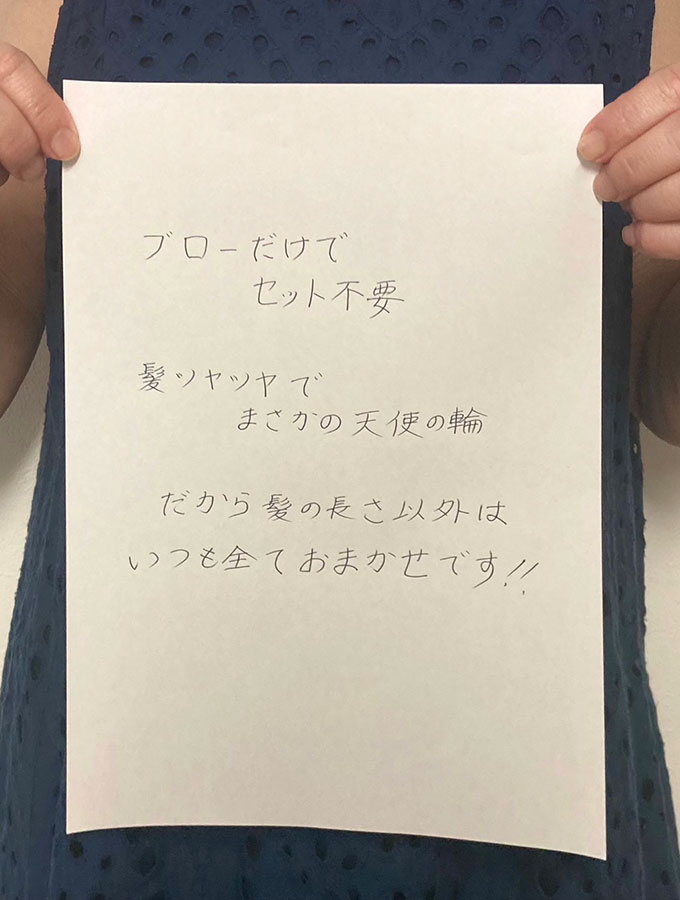 ブローだけで
セット不要
髪ツヤツヤで
まさかの天使の輪
だから髪の長さ以外は
いつも全ておまかせです!!